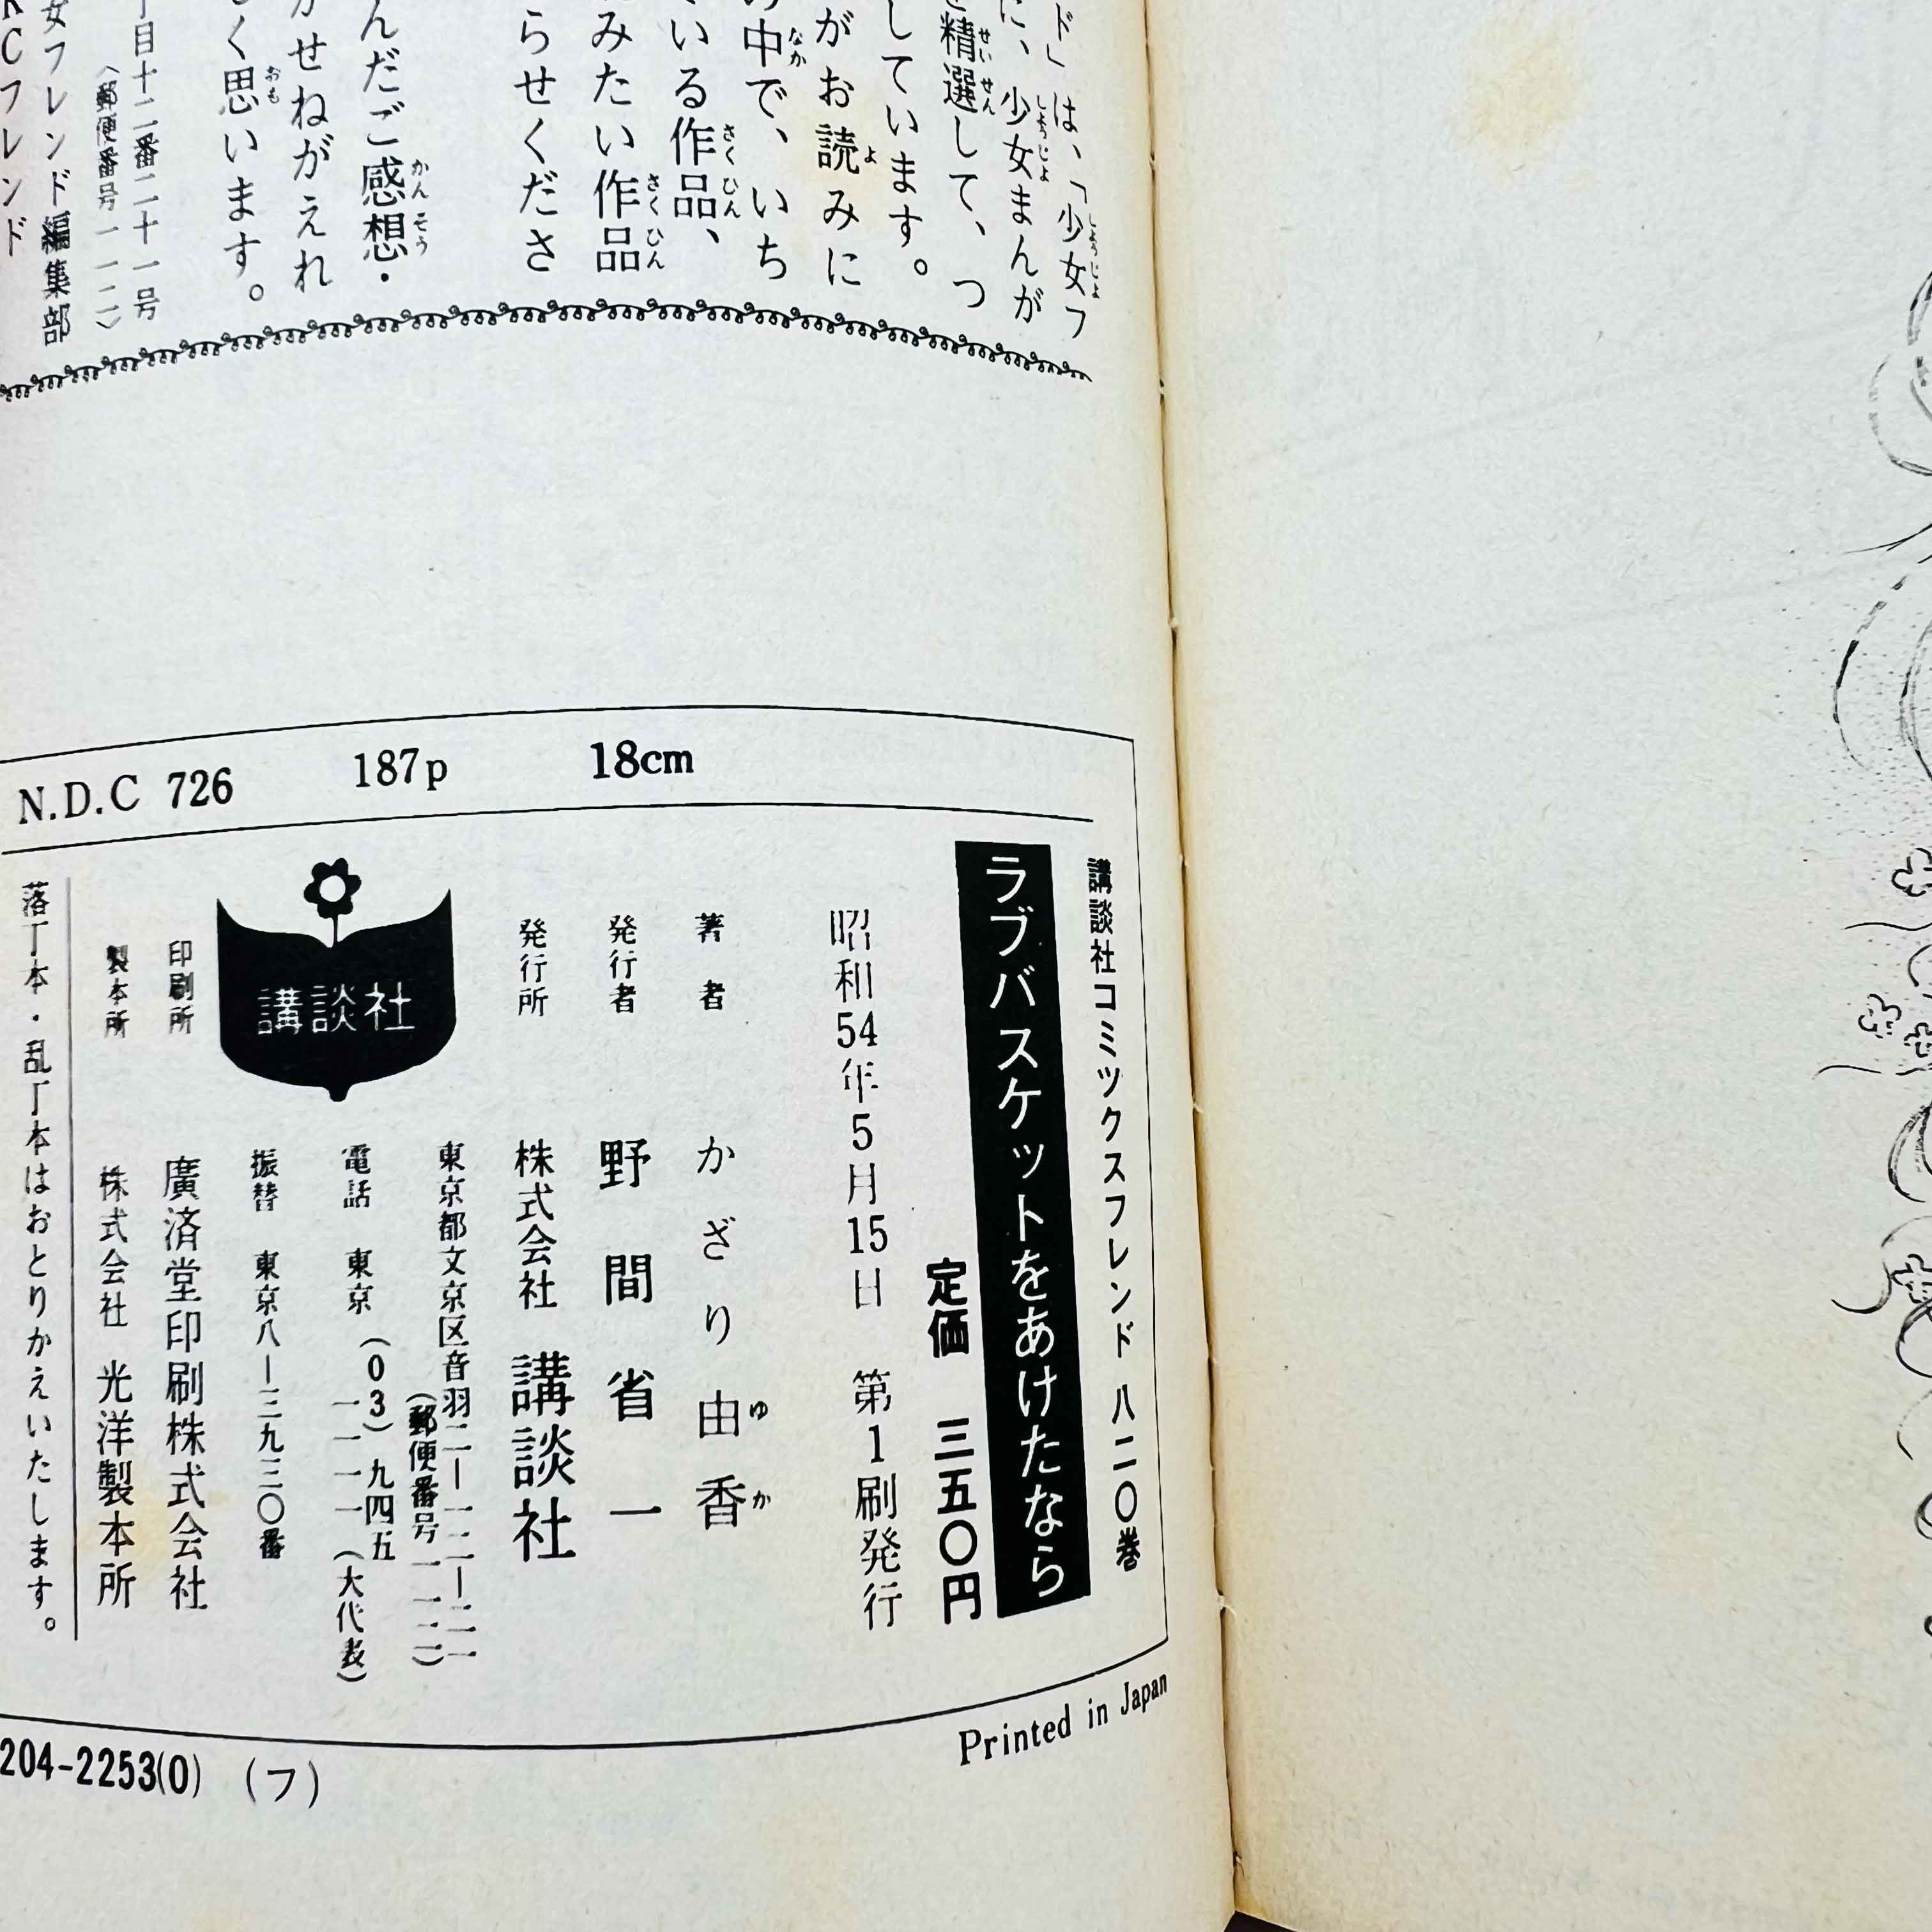 ド」は、「少女フ
に、少女まんが
精選して、つ
しています。
がお読みに
中で、いち
いる作品、
みたい作品
らせくださ
んだご感想・
せねがえれ
く思います。
目十二番二十一号
〈郵便番号一一二〉
女フレンド編集部
KCフレンド
N.D.C 726 187p 18cm
講談社コミックスフレンド 八二〇巻
ラブバスケットをあけたなら
定価 三五〇円
昭和54年5月15日 第1刷発行
著者 かざり由香
発行者 野間省一
発行所 株式会社 講談社
東京都文京区音羽二—一二—二一
(郵便番号一一二)
電話 東京 (03) 九四五
一一一一 (大代表)
振替 東京八—三九三〇番
講談社
印刷所 廣済堂印刷株式会社
製本所 株式会社 光洋製本所
落丁本・乱丁本はおとりかえいたします。
Printed in Japan
204-2253(0) (フ)